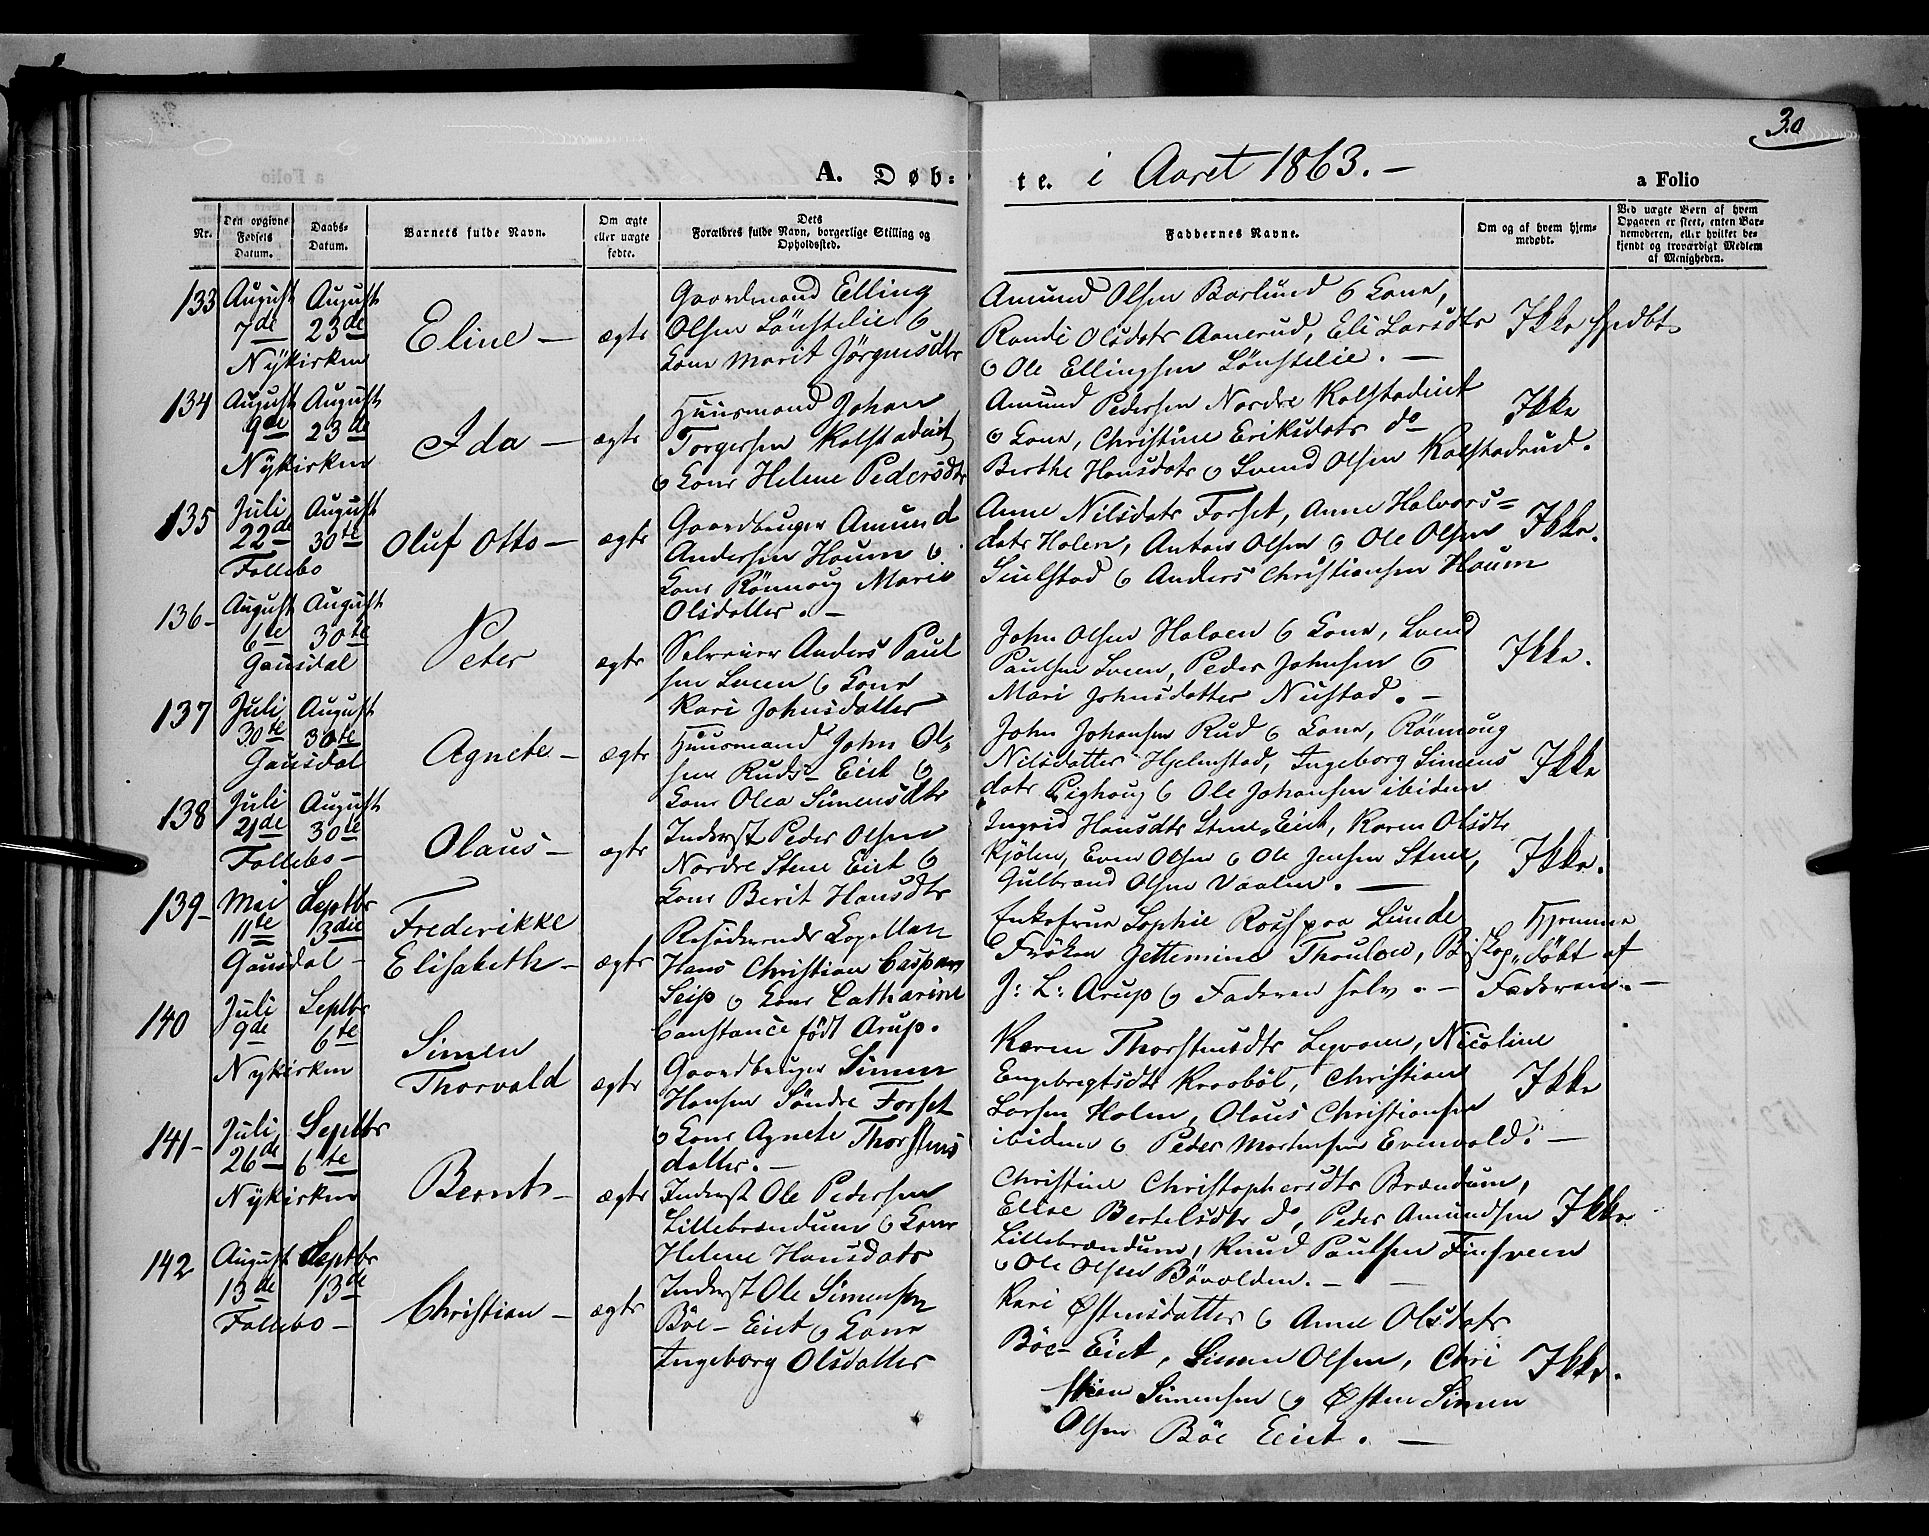 30
A. Døb-
te. i Aaret 1863.-
a Folio
Nr.
Den opgivne Fødsels Datum.
Daabs-Datum.
Barnets fulde Navn.
Om ægte eller uægte fødte.
Dets Forældres fulde Navn, borgerlige Stilling og Opholdssted.
Faddernes Navne.
Om og af hvem hjemmedøbt.
Ved uægte Børn af hvem Opgaven er skeet, enten Barnemoderen, eller hvilket bekjendt og troværdigt Medlem af Menigheden.
133 August 7de August 23de
Nykirken
Eline -
ægte
Gaardmand Elling
Olsen Lönstelie &
Kone Marit Jörgensdtr
Amund Olsen Barlund & Kone,
Randi Olsdatr Aanerud, Eli Larsdtr
& Ole Ellingsen Lönstelie. -
Ikke
134 August 9de August 23de
Nykirken
Ida -
ægte
Huusmand Johan
Torgersen Kolstadeiet
& Kone Helene Pedersdtr
Amund Pedersen Nordre Kolstadeiet
& Kone, Christine Eriksdatr do
Berthe Hansdatr & Svend Olsen Kolstadrud.
Ikke
135 Juli 22de August 30te
Follebo
Oluf Otto -
ægte
Gaardbruger Amund
Andersen Houm &
Kone Rönnoug Marie
Olsdatter. -
Anne Nilsdatr Forset, Anne Halvors=
datr Holen, Anton Olsen & Ole Olsen
& Anders Christiansen Houm
Ikke.
136- August 6te August 30te
Gausdal
Peter
ægte
Selveier Anders Paul
sen Sveen & Kone
Kari Johnsdatter
John Olsen Holoen & Kone, Svend
Paulsen Sveen, Peder Johnsen &
Mari Johnsdatter Nustad. -
Ikke.
137 Juli 30te August 30te
Gausdal
Agnete -
ægte
Huusmand John Ol=
sen Ruds-Eiet &
Kone Olea Simensdtr
John Johansen Rud & Kone, Rönnoug
Nilsdatter Hjelmstad, Ingeborg Simens
datr & Ole Johansen ibidem
Ikke
138 Juli 21de August 30te
Follebo -
Olaus -
ægte
Inderst Peder Olsen
Nordre Stene Eiet &
Kone Berit Hansdtr
Ingrid Hansdtr Stene-Eiet, Karen Olsdtr
Kjölen, Even Olsen & Ole Jensen Stene,
Gulbrand Olsen Vaalen. -
Ikke.
139- Mai 11te Septbr 13die
Gausdal -
Frederikke
Elisabeth -
ægte
Residerende Capellan
Hans Christian Caspari
Seip & Kone Catharine
Constance födt Arup.
Enkefrue Sophie Lunde
& Fröken Jettemine Thaulow, Biskop
J: L: Arup & Faderen selv. -
Hjemme
döbt af
Faderen. -
140 Juli 9de Septbr 6te
Nykirken
Simen
Thorvald
ægte
Gaardbruger Simen
Hansen Söndre Forset
& Kone Agnete Thorstens
datter. -
Karen Thorstensdtr, Nicoline
Engebregtsdtr Kraaböl, Christian
Larsen Holen, Olaus Christiansen
ibidem & Peder Mortensen Evenvold. -
Ikke
141- Juli 26de Septbr 6te
Nykirken
Bernt -
ægte
Inderst Ole Pedersen
Lillebrændum & Kone
Helene Hansdatr
Christine Christophersdtr Brændum,
Elise Bertelsdtr do, Peder Amundsen
Lillebrændum, Knud Paulsen Finsveen
& Ole Olsen Bövolden. -
Ikke
142 August 13de Septbr 13de
Follebo -
Christian -
ægte
Inderst Ole Simensen
Böe-Eiet & Kone
Ingeborg Olsdatter
Kari Østensdatter & Anne Olsdatr
Böe-Eiet, Simen Olsen, Chri
stian Simensen & Østen Simen
Olsen Böe Eiet. -
Ikke.